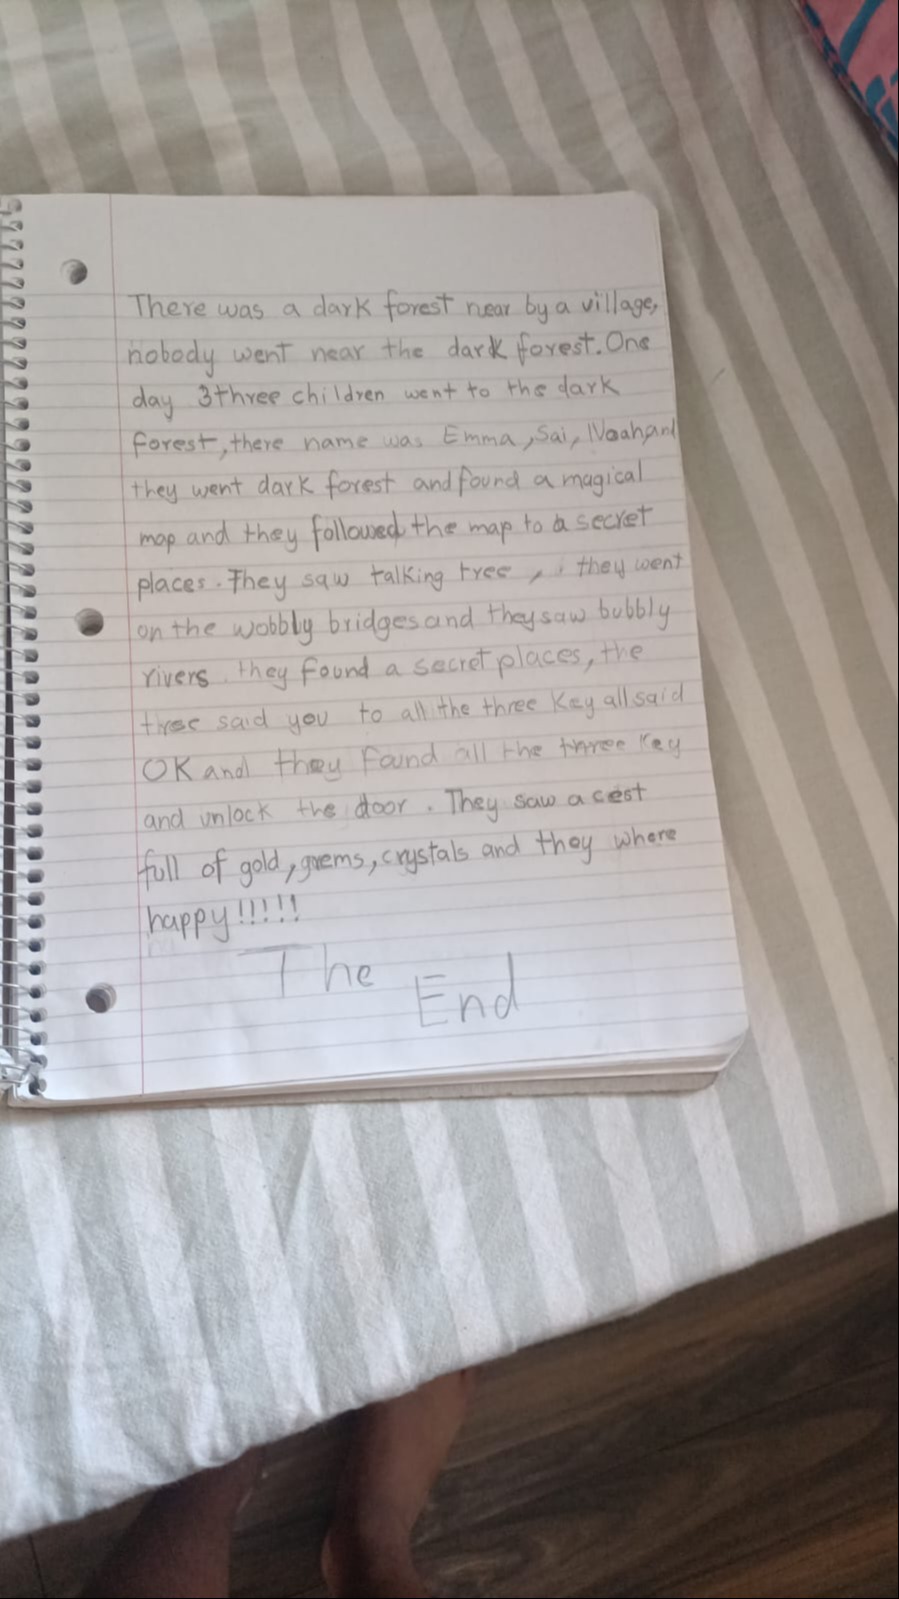 There was a dark forest near by a village,
nobody went near the dark forest. One
day 3three children went to the dark
forest, there name was Emma, Sai, Noah,and
they went dark forest and found a magical
map and they followed the map to a secret
places. They saw talking tree , they went
on the wobbly bridges and they saw bubbly
rivers. they found a secret places, the
tree said you to all the three key all said
OK and they found all the three key
and unlock the door. They saw a cest
full of gold, guems, crystals and they where
happy!!!!!
The
End